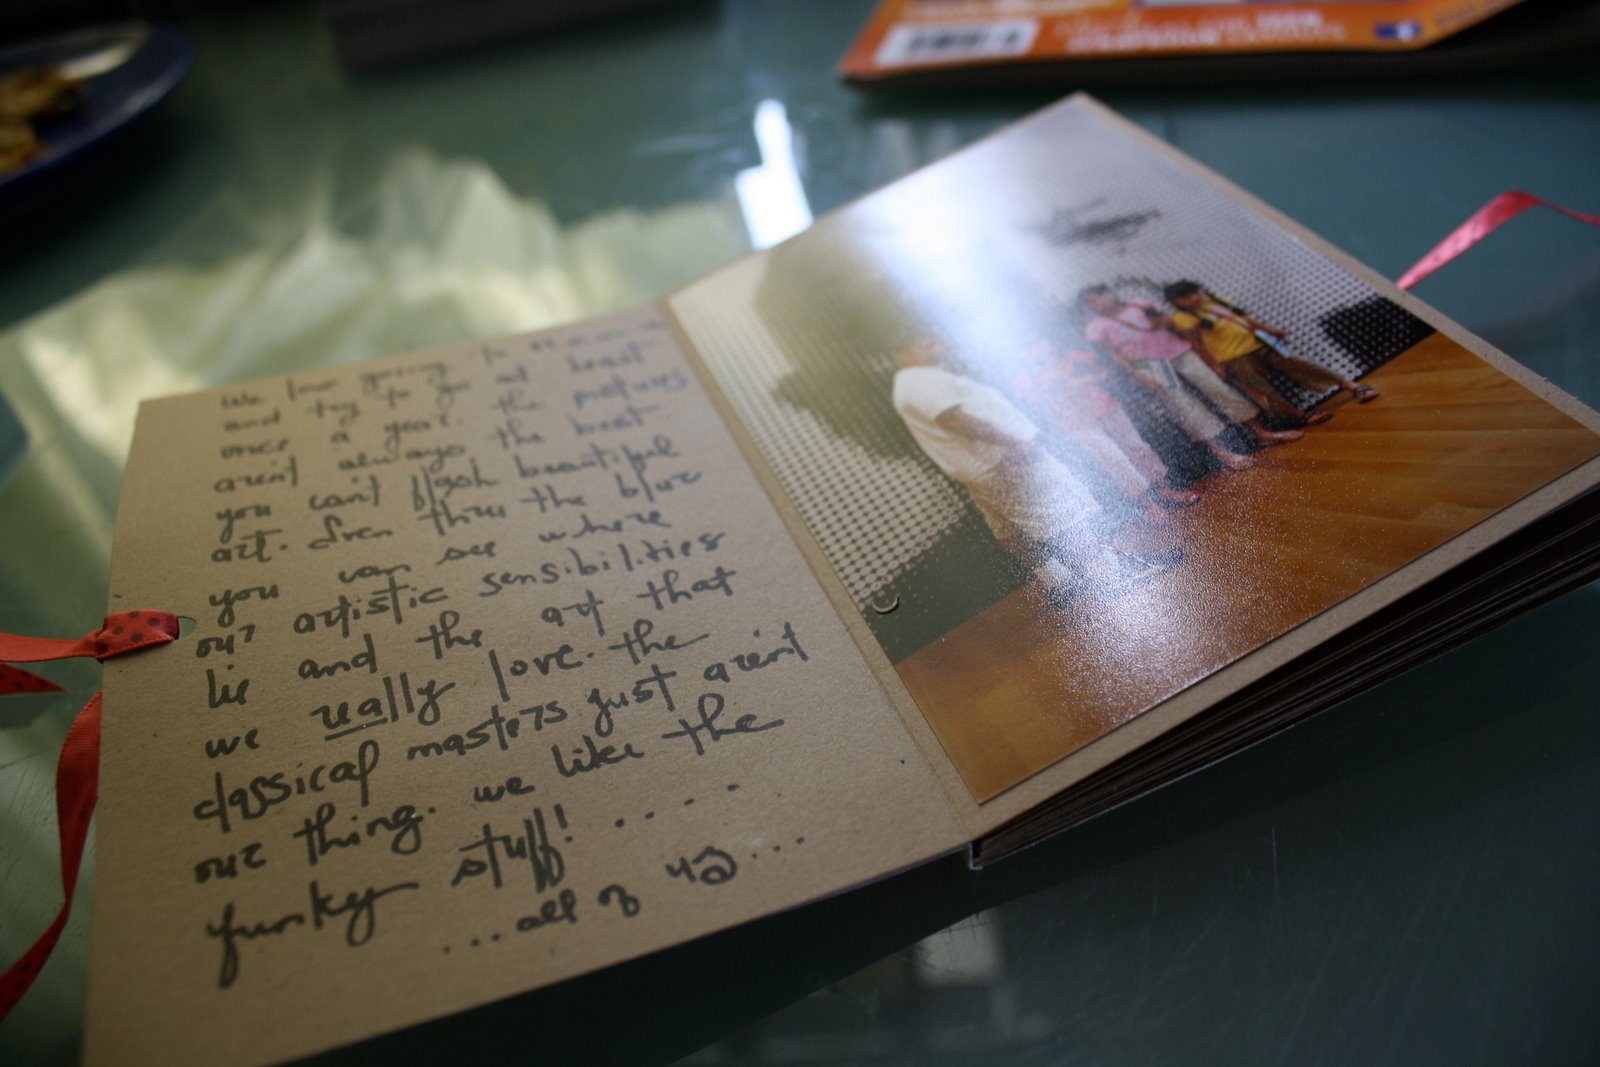 We love going to
and try to go at least
once a year. the pictures
aren't always the best
you can't flash beautiful
art. Even thru the blur
you can see where
our artistic sensibilities
lie and the art that
we really love. the
classical masters just aren't
our thing. we like the
funky stuff! ....
...all of us...